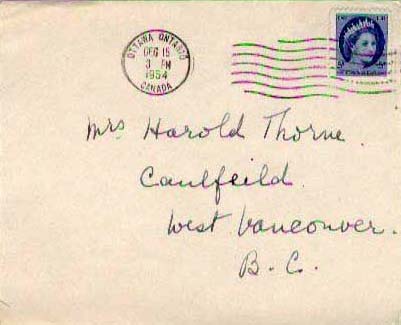 OTTAWA ONTARIO
DEC 15
3 PM
1954
CANADA
Mrs Harold Thorne.
Caulfeild.
West Vancouver.
B. C.